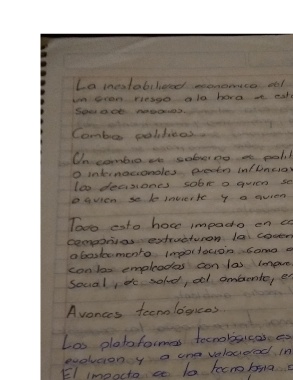 La inestabilidad economica del
un gran riesgo a la hora de est
Socio de negocios.
Cambio politico
Un cambio de gobierno de polit
o internacionales pueden influencia
las decisiones sobre a quien se
o a quien se le invierte y a quien
Todo esto hace impacto en co
compañias estructuran la caden
abastecimento, importacion como e
con los empleados con los impue
Social, de salud, del ambiente, e
Avances tecnologicos
Las plataformas tecnologicas es
evolucion y a una velocidad in
El impacto de la tecnologia